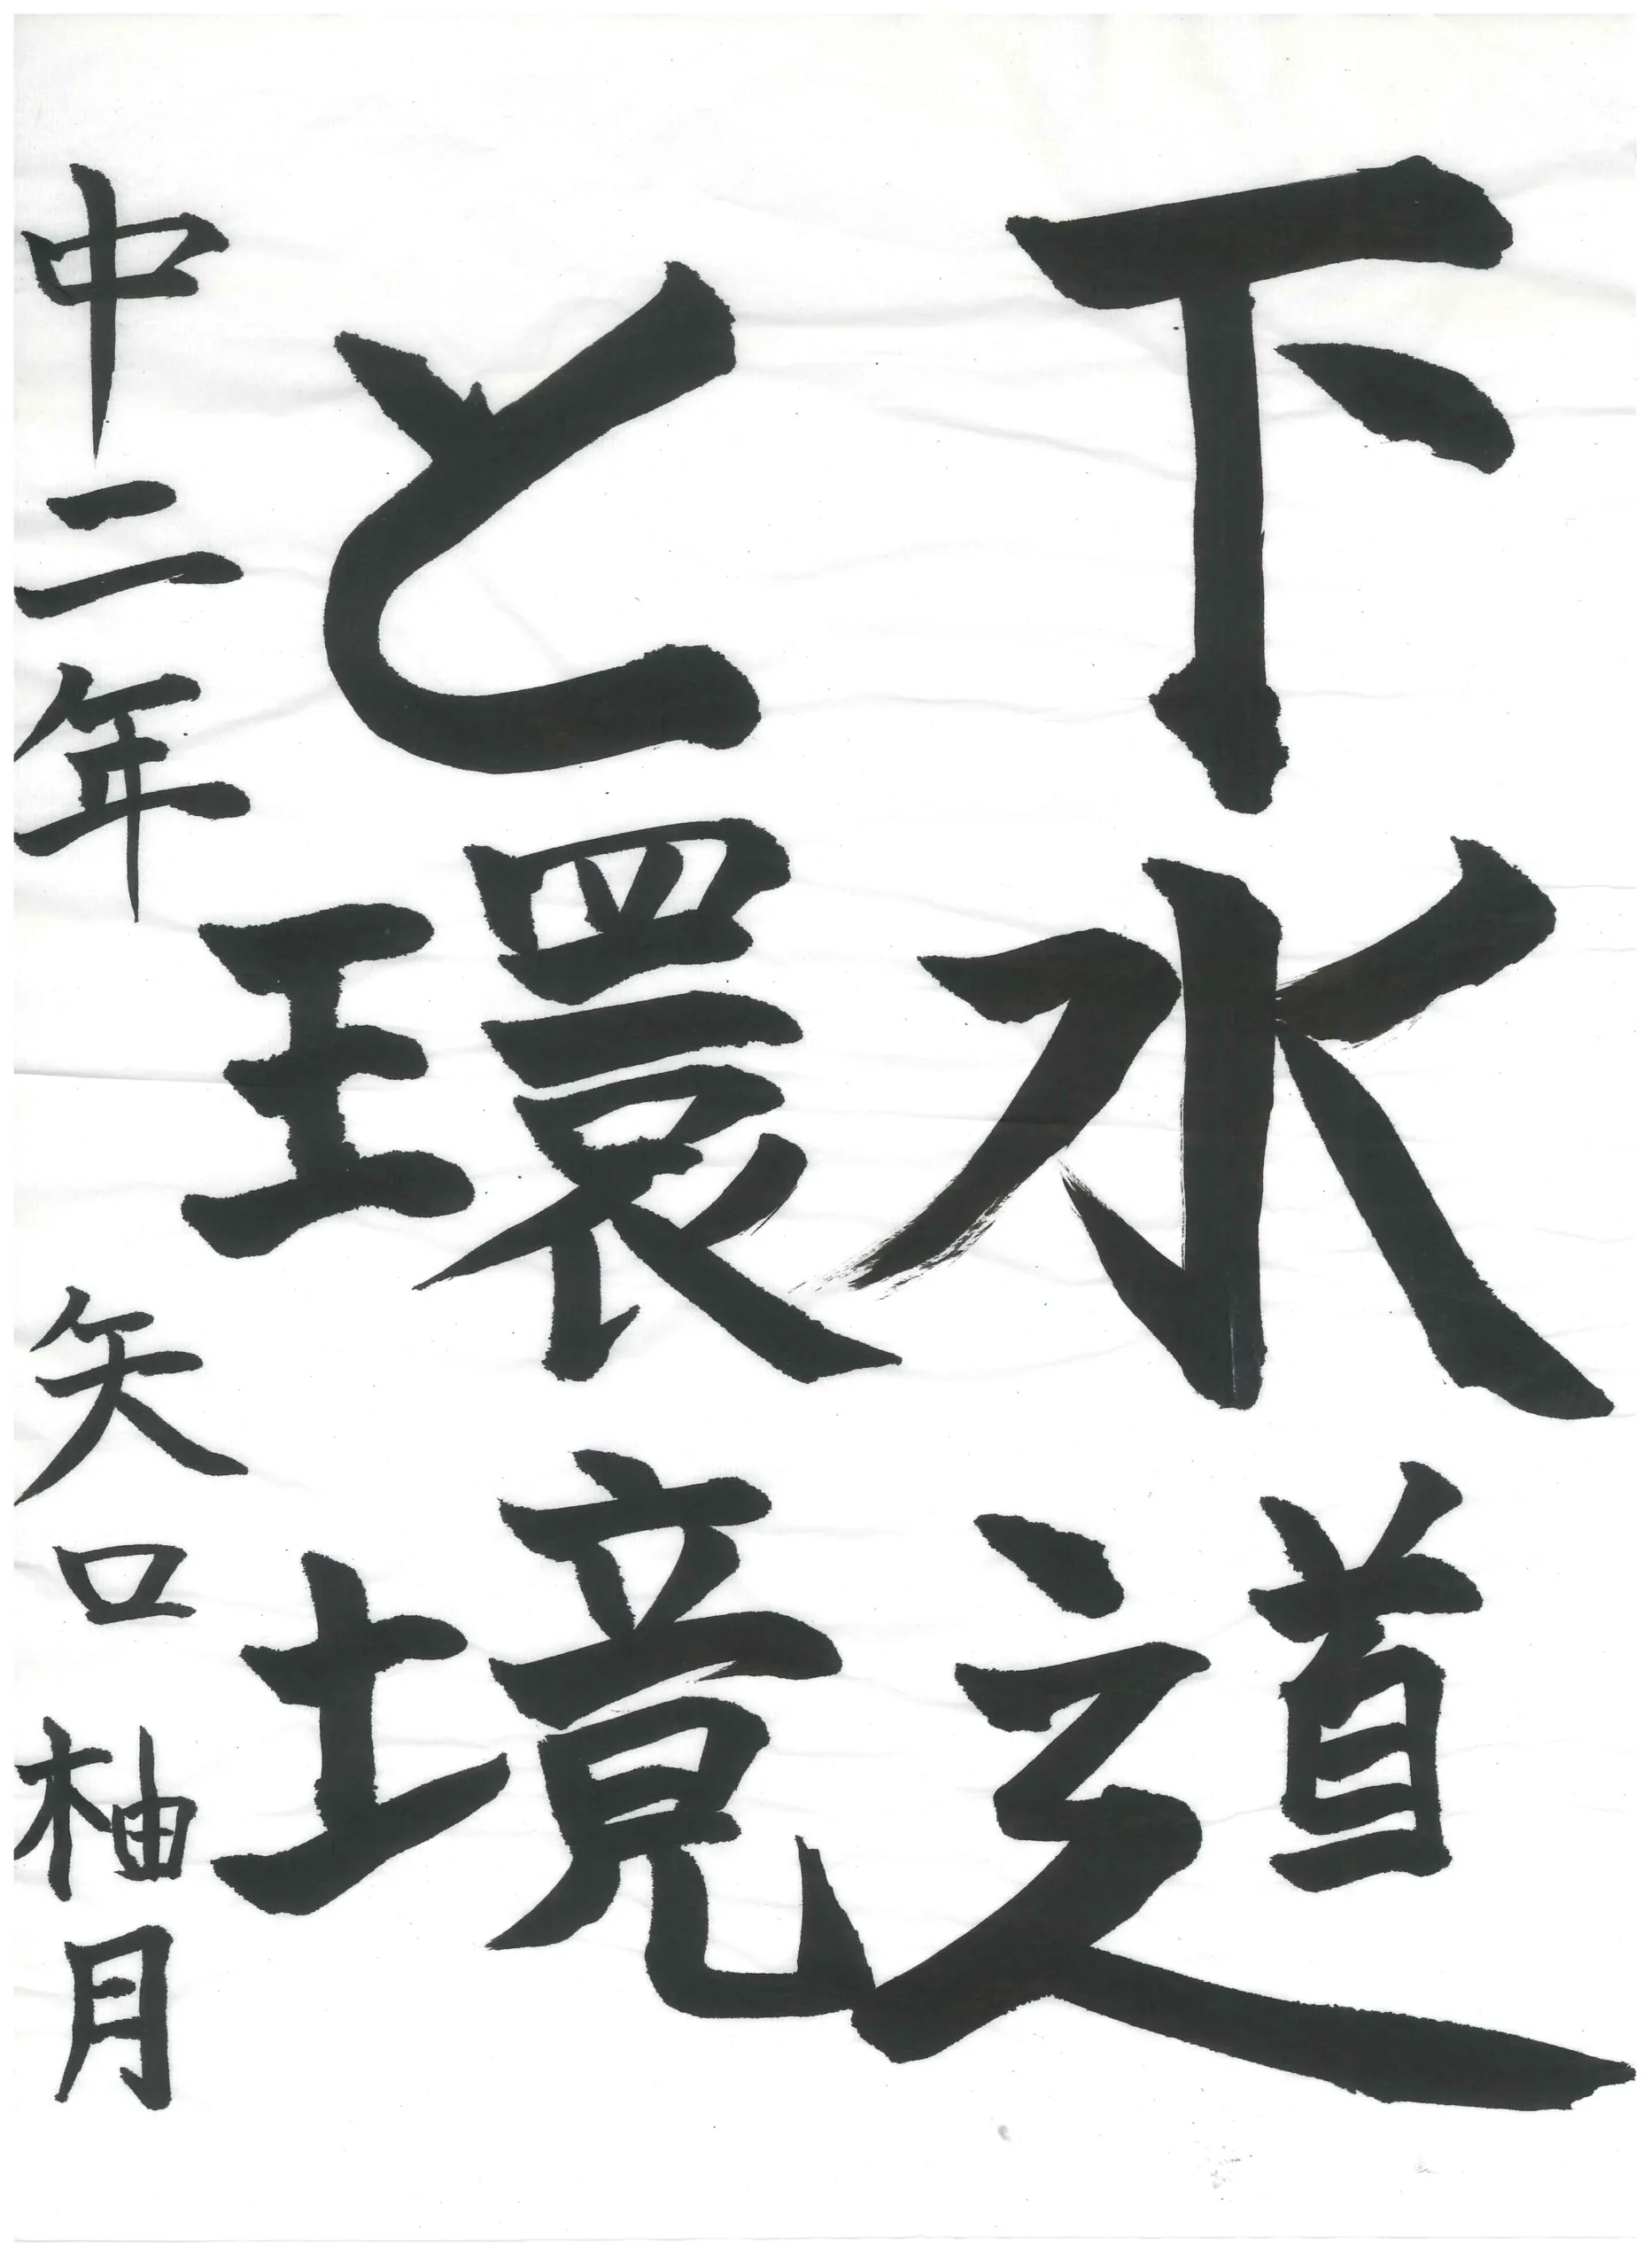 下水道
と環境
中二年 矢口柚月